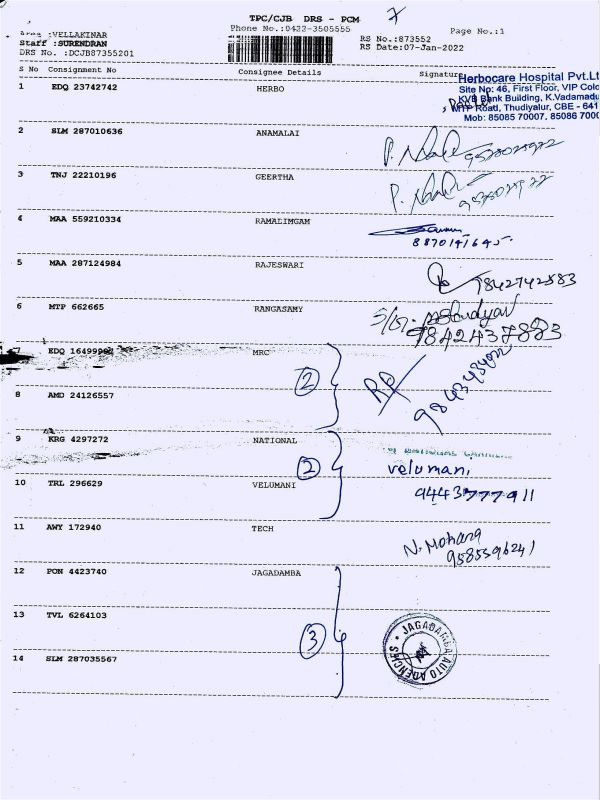 TPC/CJB DRS - PCM 7
Phone No.:0422-3505555
Page No.:1
Area :VELLAKINAR
Staff :SURENDRAN
DRS No. :DCJB87355201
RS No.:873552
RS Date:07-Jan-2022
S No Consignment No Consignee Details Signature
Herbocare Hospital Pvt.Lt
Site No: 46, First Floor, VIP Colo
KVB Bank Building, K.Vadamadu
MTP Road, Thudiyalur, CBE - 641
Mob: 85085 70007, 85086 7000
1 EDQ 23742742 HERBO
2 SLM 287010636 ANAMALAI
3 TNJ 22210196 GEERTHA
4 MAA 559210334 RAMALIMGAM
8870141645
5 MAA 287124984 RAJESWARI
9842742583
6 MTP 662665 RANGASAMY
9842437883
7 EDQ 1649999 MRC
2
8 AMD 24126557
9 KRG 4297272 NATIONAL
2
velumani
10 TRL 296629 VELUMANI
9443777911
11 AWY 172940 TECH
N. Mohana
9585596241
12 PON 4423740 JAGADAMBA
13 TVL 6264103
3
JAGADAMBA AUTO AGENCIES
14 SLM 287035567